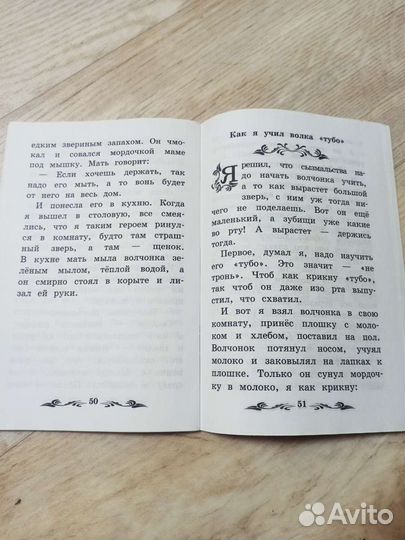 едким звериным запахом. Он чмо-
кал и совался мордочкой маме
под мышку. Мать говорит:
— Если хочешь держать, так
надо его мыть, а то вонь будет
от него на весь дом.
И понесла его в кухню. Когда
я вышел в столовую, все смея-
лись, что я таким героем ринул-
ся в комнату, будто там страш-
ный зверь, а там — щенок.
В кухне мать мыла волчонка зе-
лёным мылом, тёплой водой, а
он смирно стоял в корыте и ли-
зал ей руки.
50
Как я учил волка «тубо»
Я решил, что сызмальства на-
до начать волчонка учить,
а то как вырастет большой
зверь, с ним уж тогда ни-
чего не поделаешь. Вот он ещё
маленький, а зубищи уже какие
во рту! А вырастет — держись
тогда.
Первое, думал я, надо научить
его «тубо». Это значит — «не
тронь». Чтоб как крикну «тубо»,
так чтоб он даже изо рта выпу-
стил, что схватил.
И вот я взял волчонка в свою
комнату, принёс плошку с моло-
ком и хлебом, поставил на пол.
Волчонок потянул носом, учуял
молоко и заковылял на лапках к
плошке. Только он сунул мордоч-
ку в молоко, я как крикну:
51
Avito